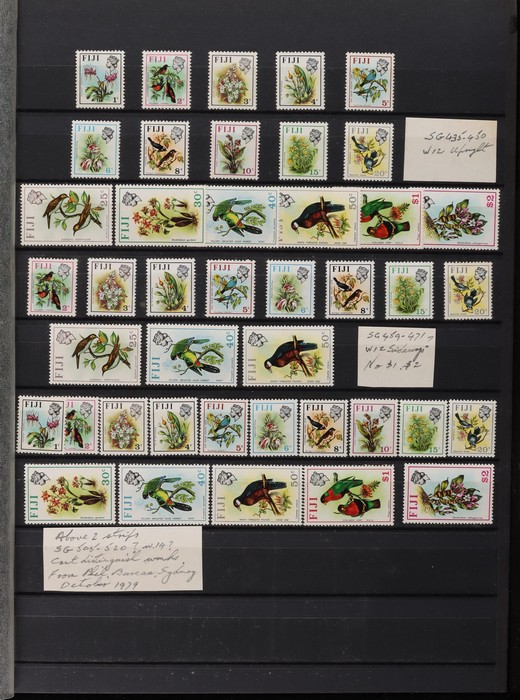 FIJI FIJI FIJI FIJI FIJI
1c 2c 3c 4c 5c
FIJI FIJI FIJI FIJI FIJI
6c 8c 10c 15c 20c
SG435-450
W12 Upright
FIJI 25c FIJI 30c 40c 50c $1 $2
FIJI FIJI FIJI FIJI FIJI FIJI FIJI FIJI
2c 3c 4c 5c 6c 8c 15c 20c
FIJI 25c FIJI 40c FIJI 50c
SG459-471
W12 Sideways
No $1, $2
FIJI FIJI FIJI FIJI FIJI FIJI FIJI FIJI FIJI
1c 2c 3c 4c 5c 6c 8c 10c 15c 20c
FIJI 30c FIJI 40c FIJI 50c FIJI $1 FIJI $2
Above 2 strips
SG 505-520? W14?
Cant distinguish wmks,
From Phil. Bureau, Sydney
October 1979